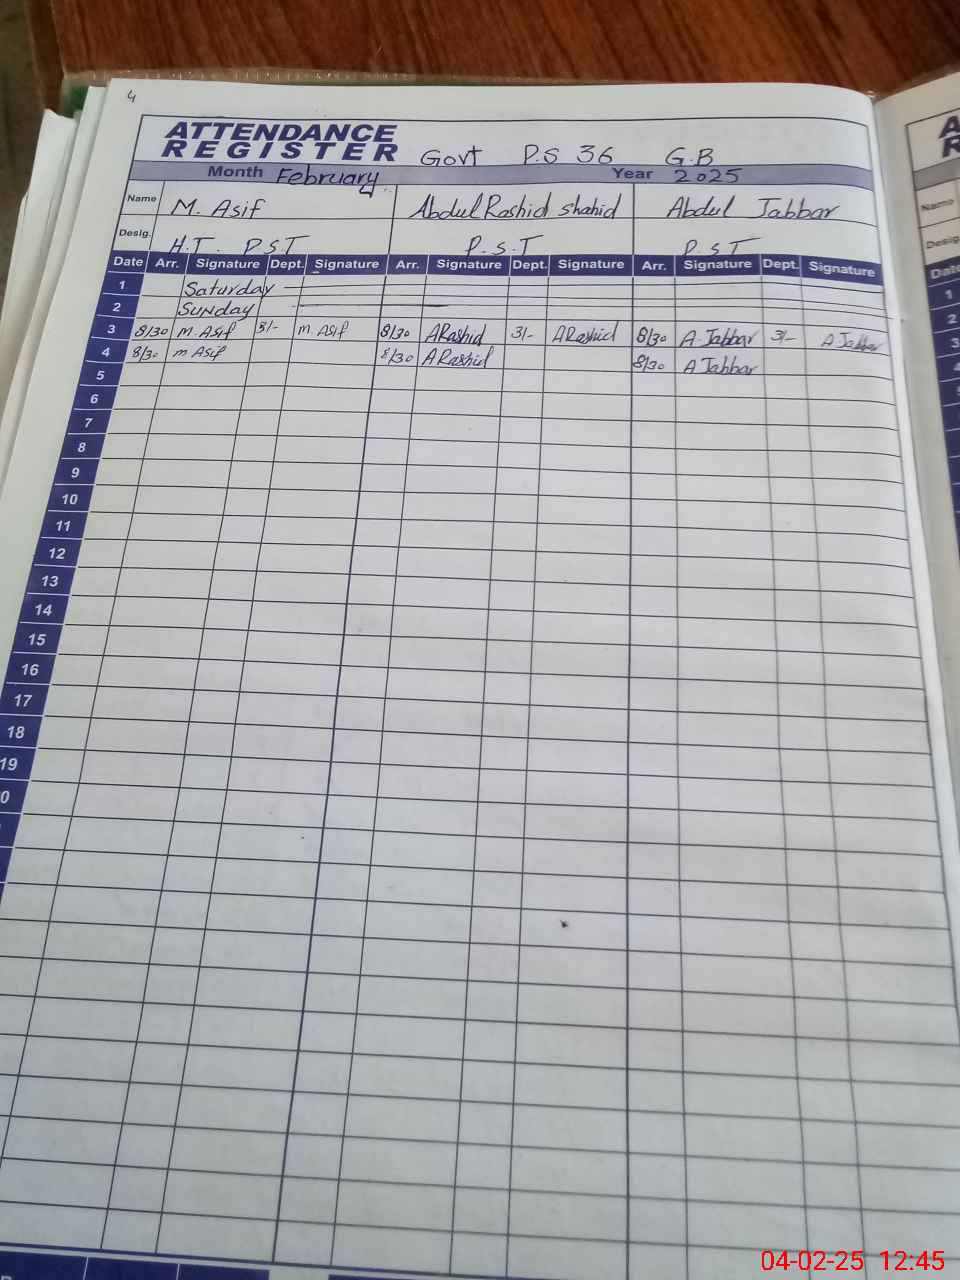 4
ATTENDANCE
REGISTER Govt P.S 36 G.B
Month February Year 2025
Name M. Asif Abdul Rashid Shahid Abdul Jabbar
Desig. H.T. P.S.T P.S.T P.S.T
Date Arr. Signature Dept. Signature Arr. Signature Dept. Signature Arr. Signature Dept. Signature
1 Saturday
2 Sunday
3 8/30 M. Asif 3/- M. Asif 8/30 ARashid 3/- ARashid 8/30 A Jabbar 3/- A Jabbar
4 8/30 M Asif 8/30 ARashid 8/30 A Jabbar
5
6
7
8
9
10
11
12
13
14
15
16
17
18
19
0
A
R
Name
Desig.
Date
1
2
3
4
04-02-25 12:45